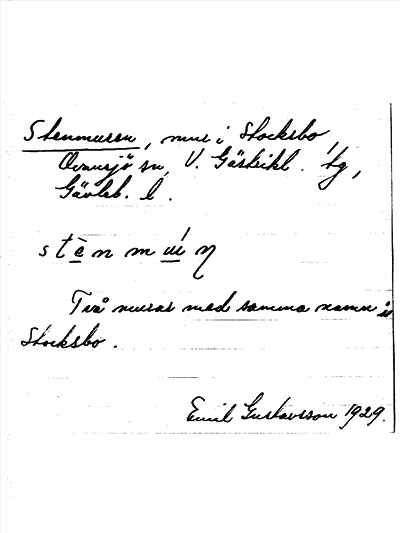 Stenmuren, mur i Stocksbo,
Ovansjö sn, V. Gästrikl. tg,
Gävleb. l.
s t e n m u ŋ
Två murar med samma namn i
Stocksbo.
Emil Gustavsson 1929.